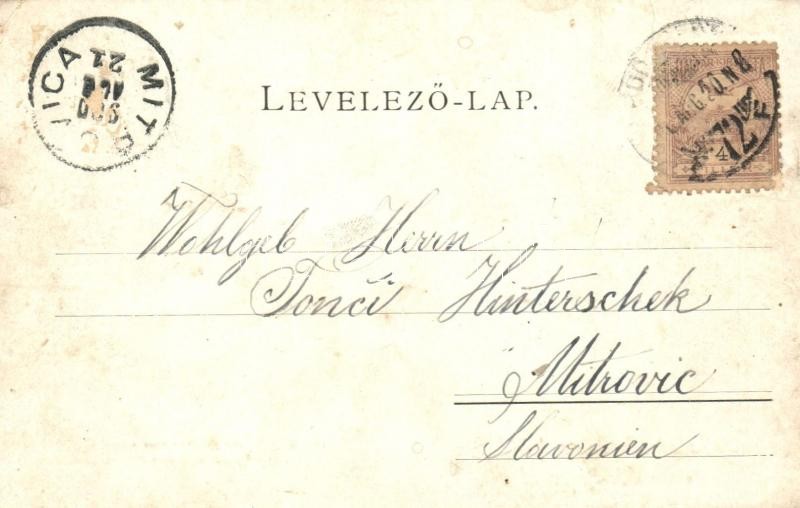 MITROVICA
LEVELEZŐ-LAP.
Wohlgeb Herrn
Tonči Hinterschek
Mitrovic
Slavonien